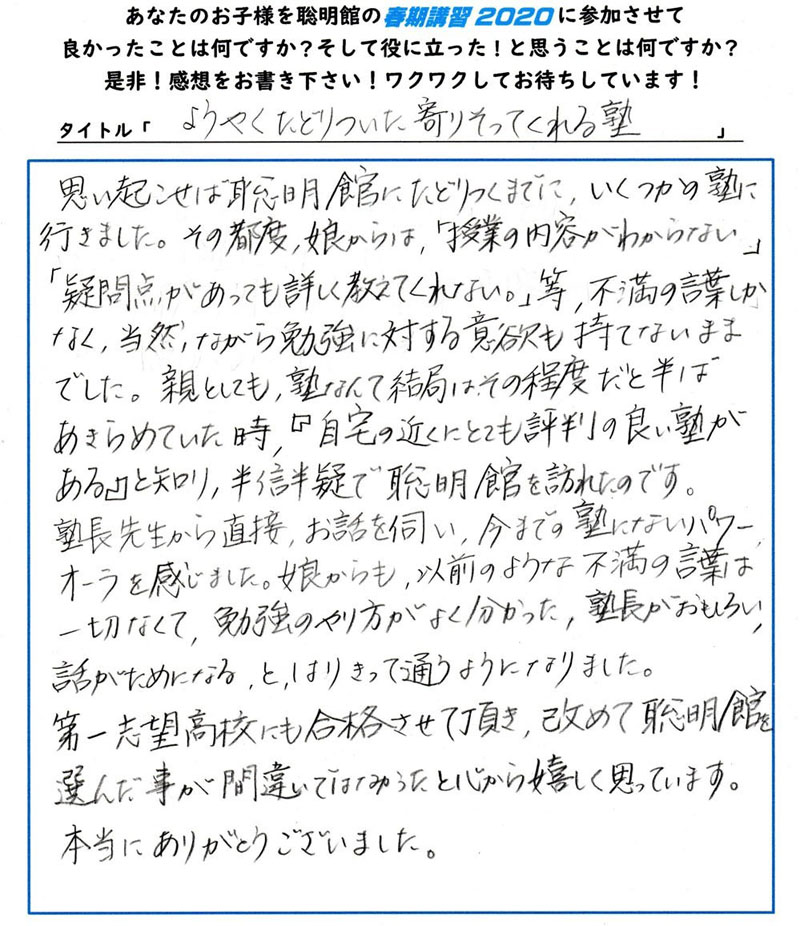 あなたのお子様を聡明館の春期講習2020に参加させて
良かったことは何ですか？そして役に立った！と思うことは何ですか？
是非！感想をお書き下さい！ワクワクしてお待ちしています！
タイトル「ようやくたどりついた寄りそってくれる塾」
思い起こせば聡明館にたどりつくまでに、いくつかの塾に
行きました。その都度、娘からは、「授業の内容がわからない」
「疑問点があっても詳しく教えてくれない。」等、不満の言葉しか
なく、当然、ながら勉強に対する意欲も持てないまま
でした。親としても、塾なんて結局はその程度だと半ば
あきらめていた時、『自宅の近くにとても評判の良い塾が
ある』と知り、半信半疑で聡明館を訪れたのです。
塾長先生から直接、お話を伺い、今までの塾にないパワー、
オーラを感じました。娘からも、以前のような不満の言葉は
一切なくて、勉強のやり方がよく分かった、塾長がおもしろい、
話がためになる、と、はりきって通うようになりました。
第一志望高校にも合格させて頂き、改めて聡明館を
選んだ事が間違いではなかったと心から嬉しく思っています。
本当にありがとうございました。